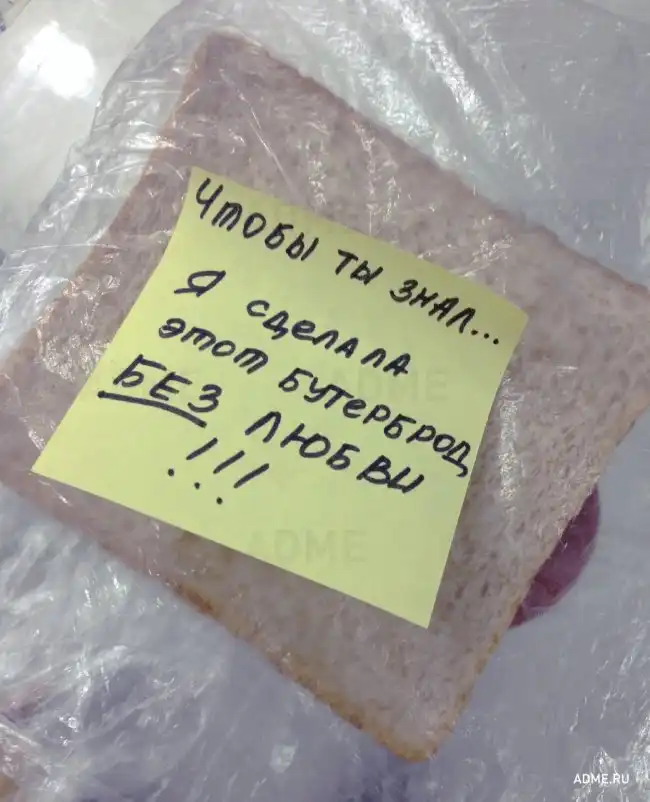 Чтобы ты знал...
Я сделала
этот бутерброд
БЕЗ любви
!!!
ADME
ADME
ADME.RU